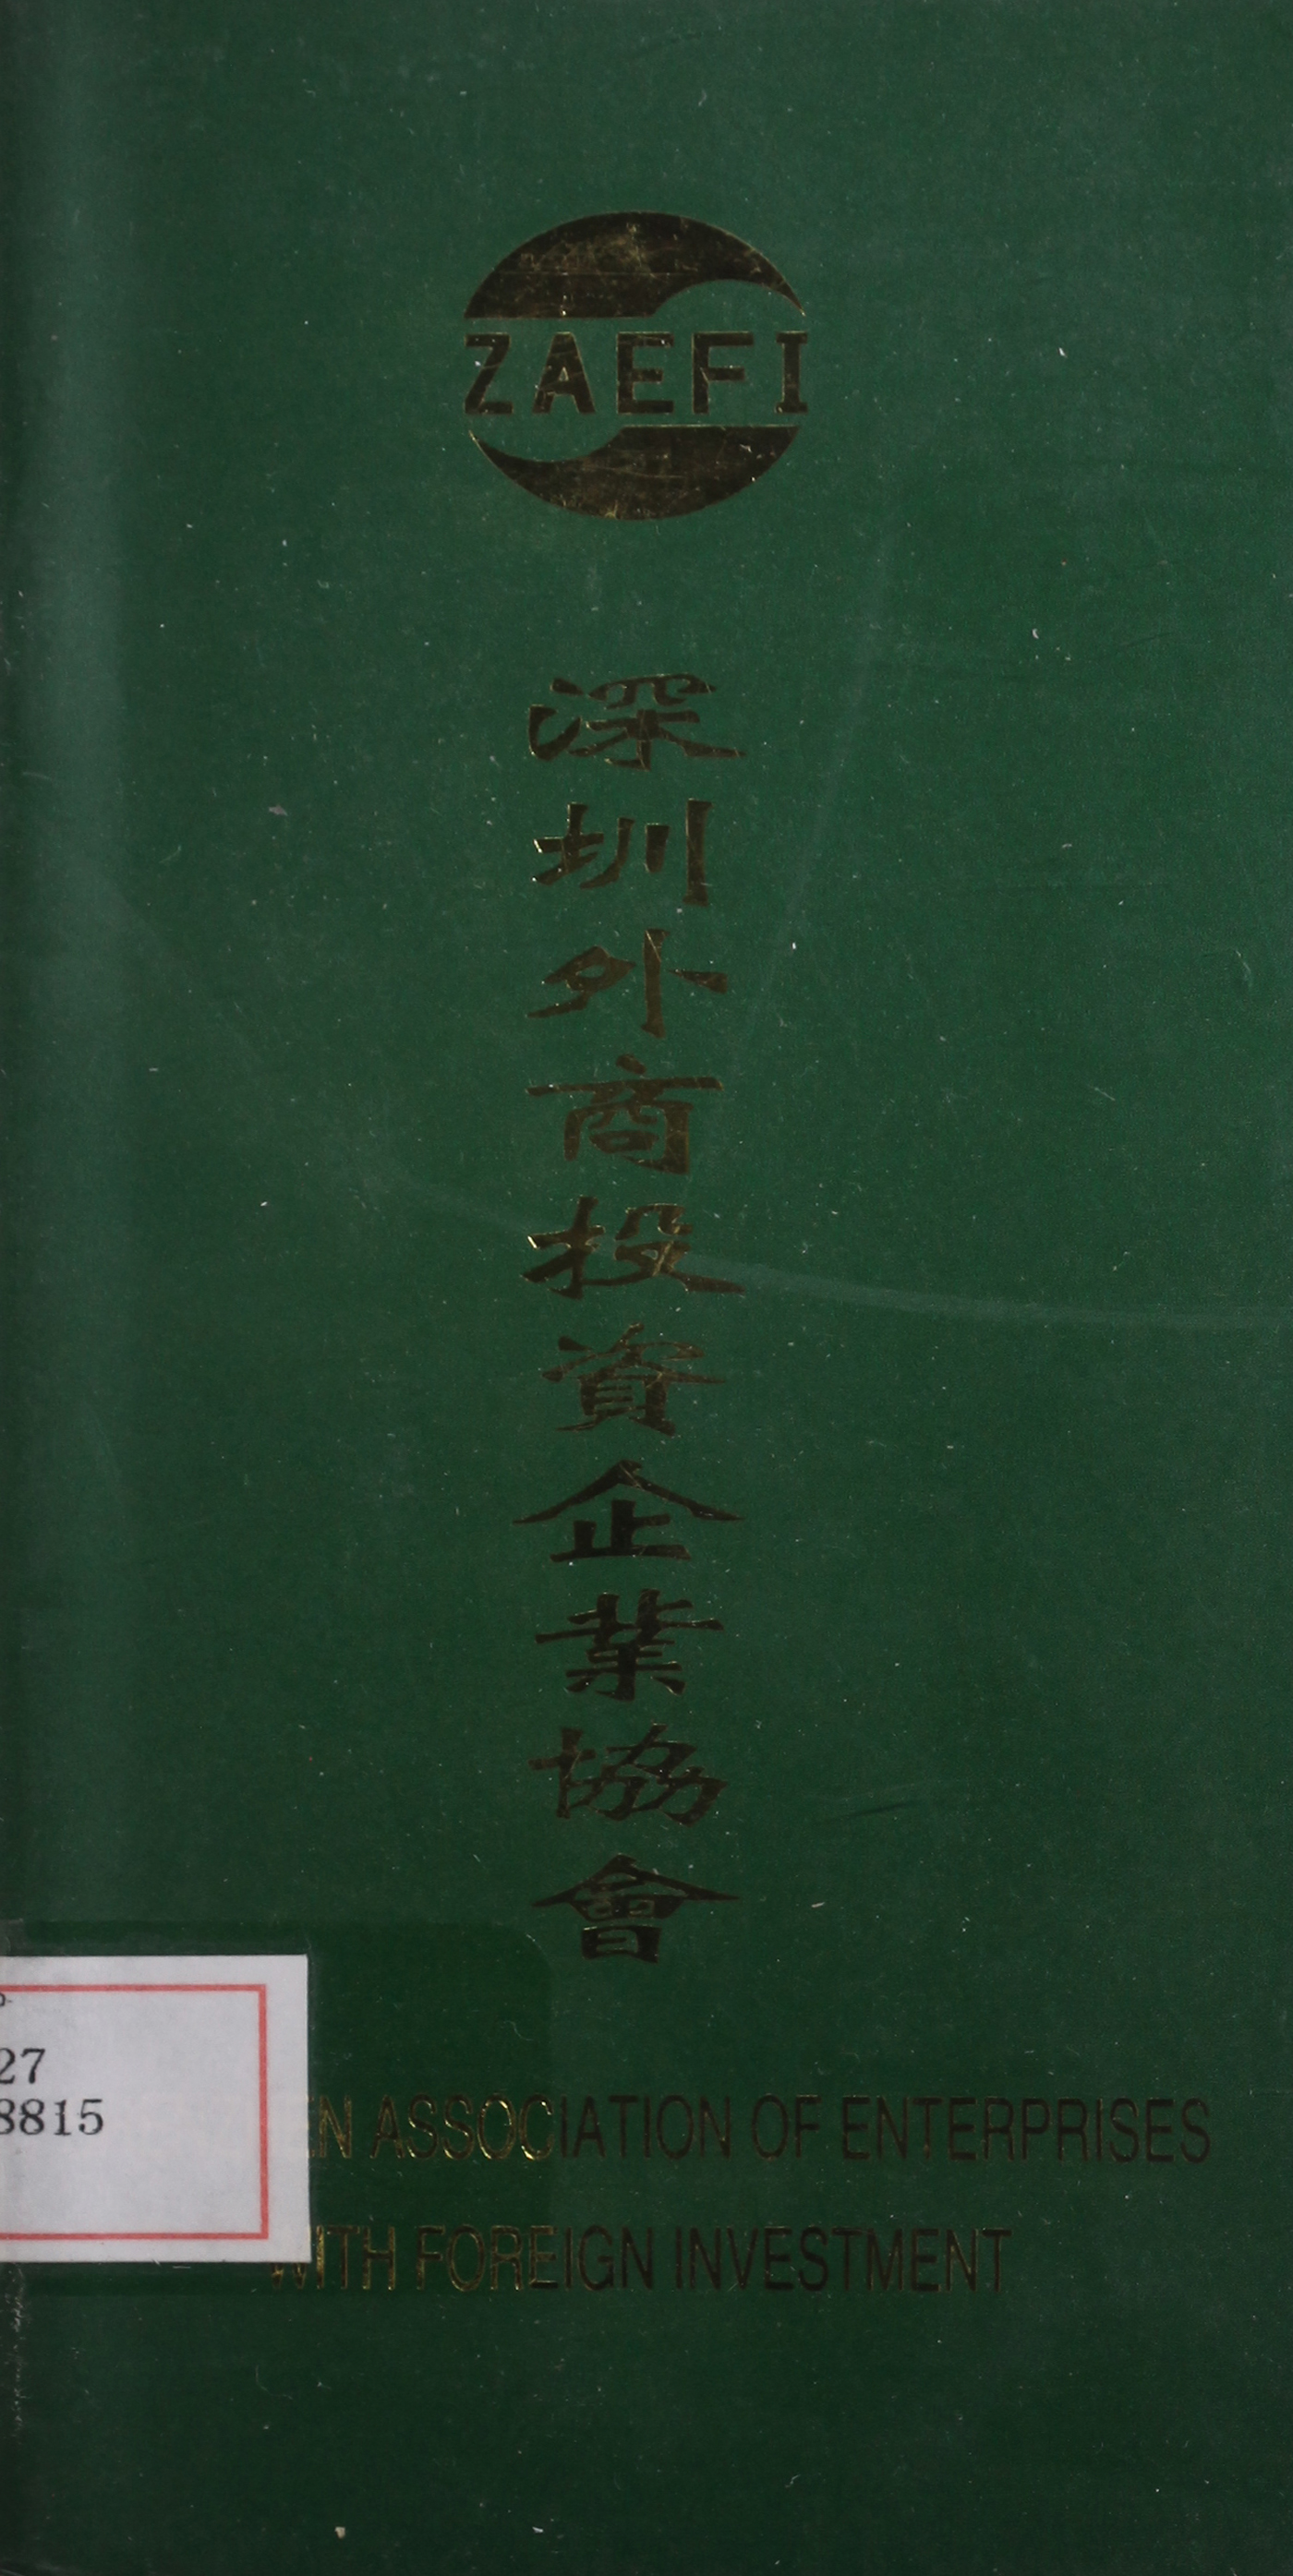 ZAEFI
深圳外商投資企業協會
27
8815
EN ASSOCIATION OF ENTERPRISES
WITH FOREIGN INVESTMENT